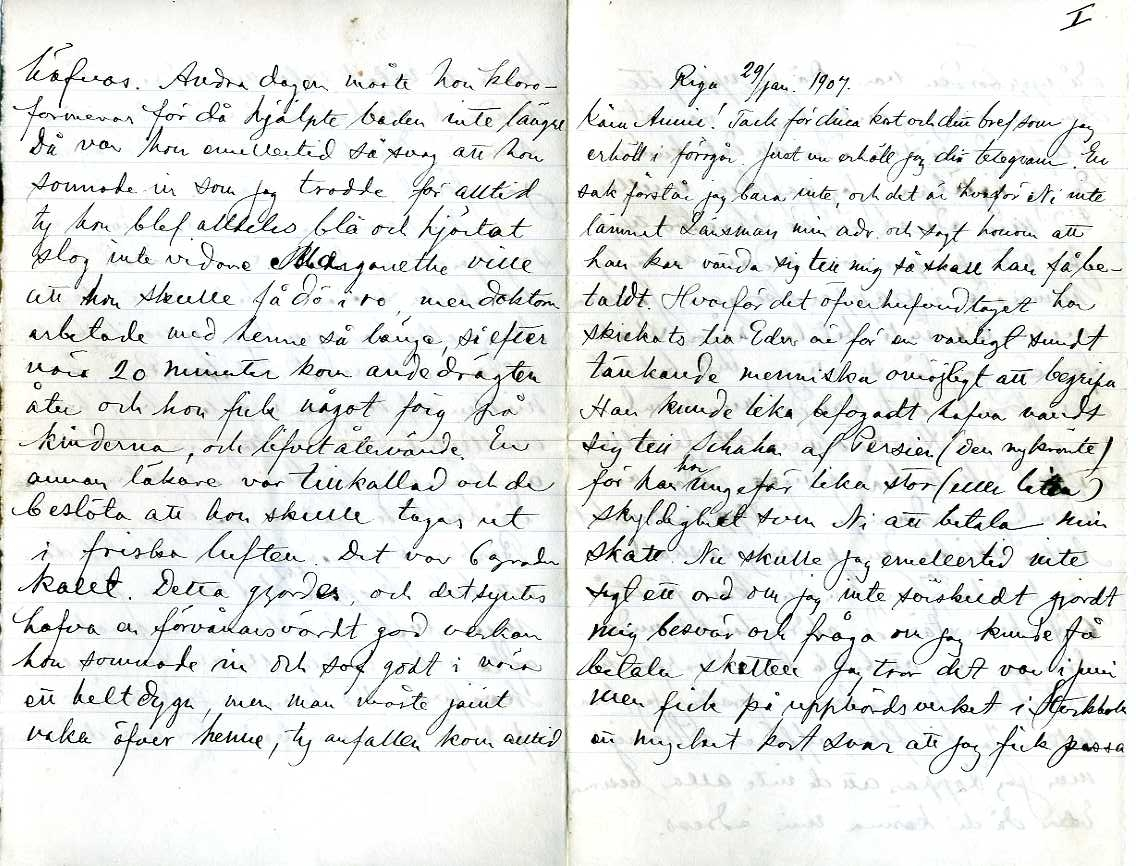 häfvas. Andra dagen måste hon kloro-
formeras för då hjälpte baden inte längre
Då var hon emellertid så svag att hon
somnade in som jag trodde för alltid
ty hon blef alldeles blå och hjärtat
slog inte vidare Margarethe ville
att hon skulle få dö i ro, men doktorn
arbetade med henne så länge, så efter
våra 20 minuter kom andedrägten
åter och hon fick något färg på
kinderna, och lifvet återvände. En
annan läkare var tillkallad och de
beslöto att hon skulle tagas ut
i friska luften. Det var 6 grader
kallt. Detta gjordes, och det syntes
hafva en förvånansvärdt god verkan
hon somnade in och sof godt i nära
ett helt dygn, men man måste jämt
vaka öfver henne, ty anfallen kom alltid
I
Riga 29/jan. 1907.
Kära Anna! Tack för dina kort och ditt bref som jag
erhöll i förrgår. Just nu erhöll jag din telegram. En
sak förstår jag bara inte, och det är hvarför Ni inte
lämnat Länsman min adr. och sagt honom att
han kan vända sig till mig så skall han få be-
taldt. Hvarför det öfverhufvudtaget har
skickats till Eder är för en vanligt sundt
tänkande menniska omöjligt att begripa
Han kunde lika befogadt hafva vändt
sig till Schahen af Persien (den nykrönte)
för han har ungefär lika stor (eller liten)
skyldighet som Ni att betala min
skatt. Nu skulle jag emellertid inte
sagt ett ord om jag inte särskildt gjordt
mig besvär och fråga om jag kunde få
betala skatten jag tror det var i juni
men fick på uppbördsverket i Stockholm
ett mycket kort svar att jag fick passa